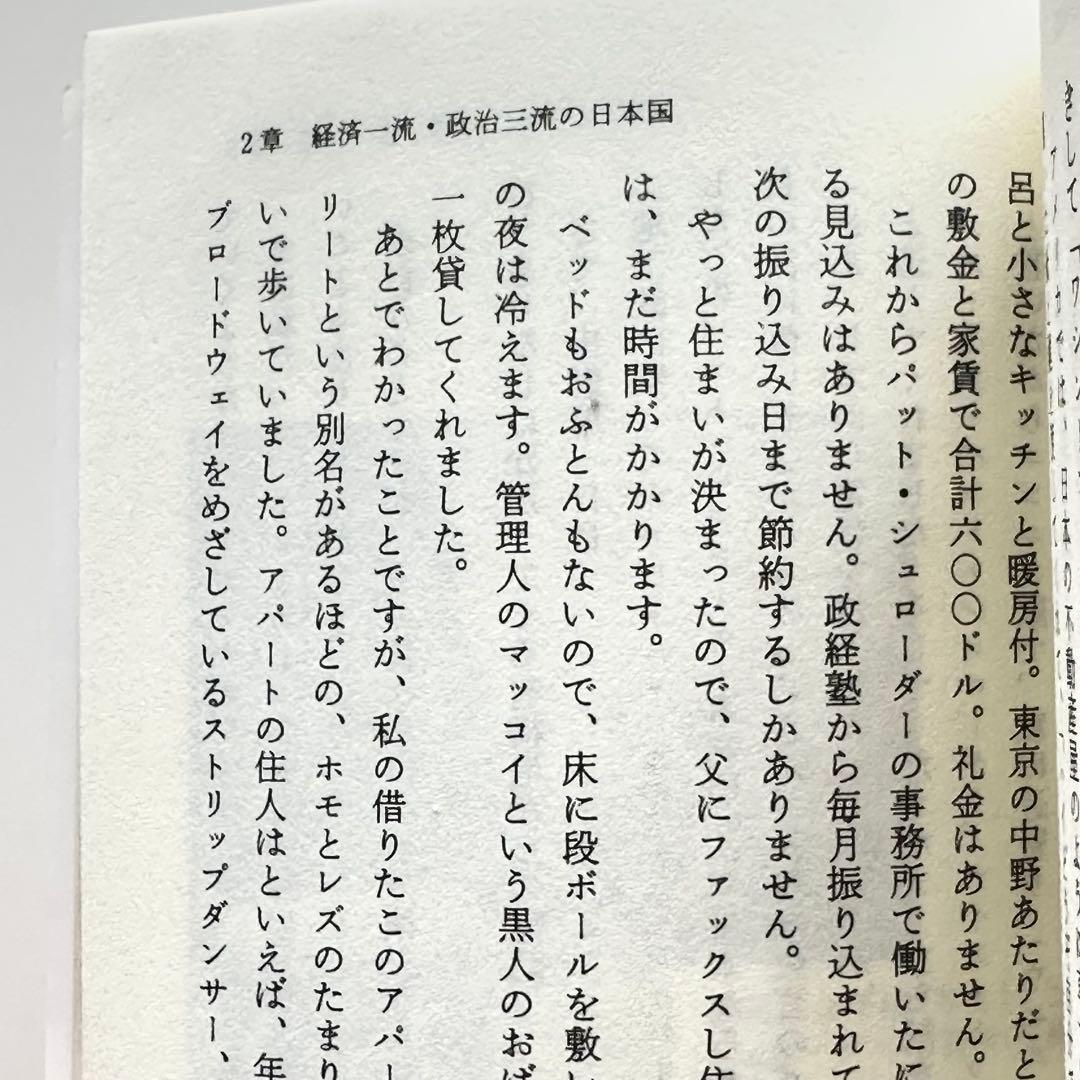 2章 経済一流・政治三流の日本国
呂と小さなキッチンと暖房付。東京の中野あたりだと
の敷金と家賃で合計六〇〇ドル。礼金はありません。
これからパット・シュローダーの事務所で働いたに
る見込みはありません。政経塾から毎月振り込まれて
次の振り込み日まで節約するしかありません。
やっと住まいが決まったので、父にファックスし
は、まだ時間がかかります。
ベッドもおふとんもないので、床に段ボールを敷
の夜は冷えます。管理人のマッコイという黒人のおば
一枚貸してくれました。
あとでわかったことですが、私の借りたこのアパー
リートという別名があるほどの、ホモとレズのたまり
いで歩いていました。アパートの住人はといえば、年
ブロードウェイをめざしているストリップダンサー、